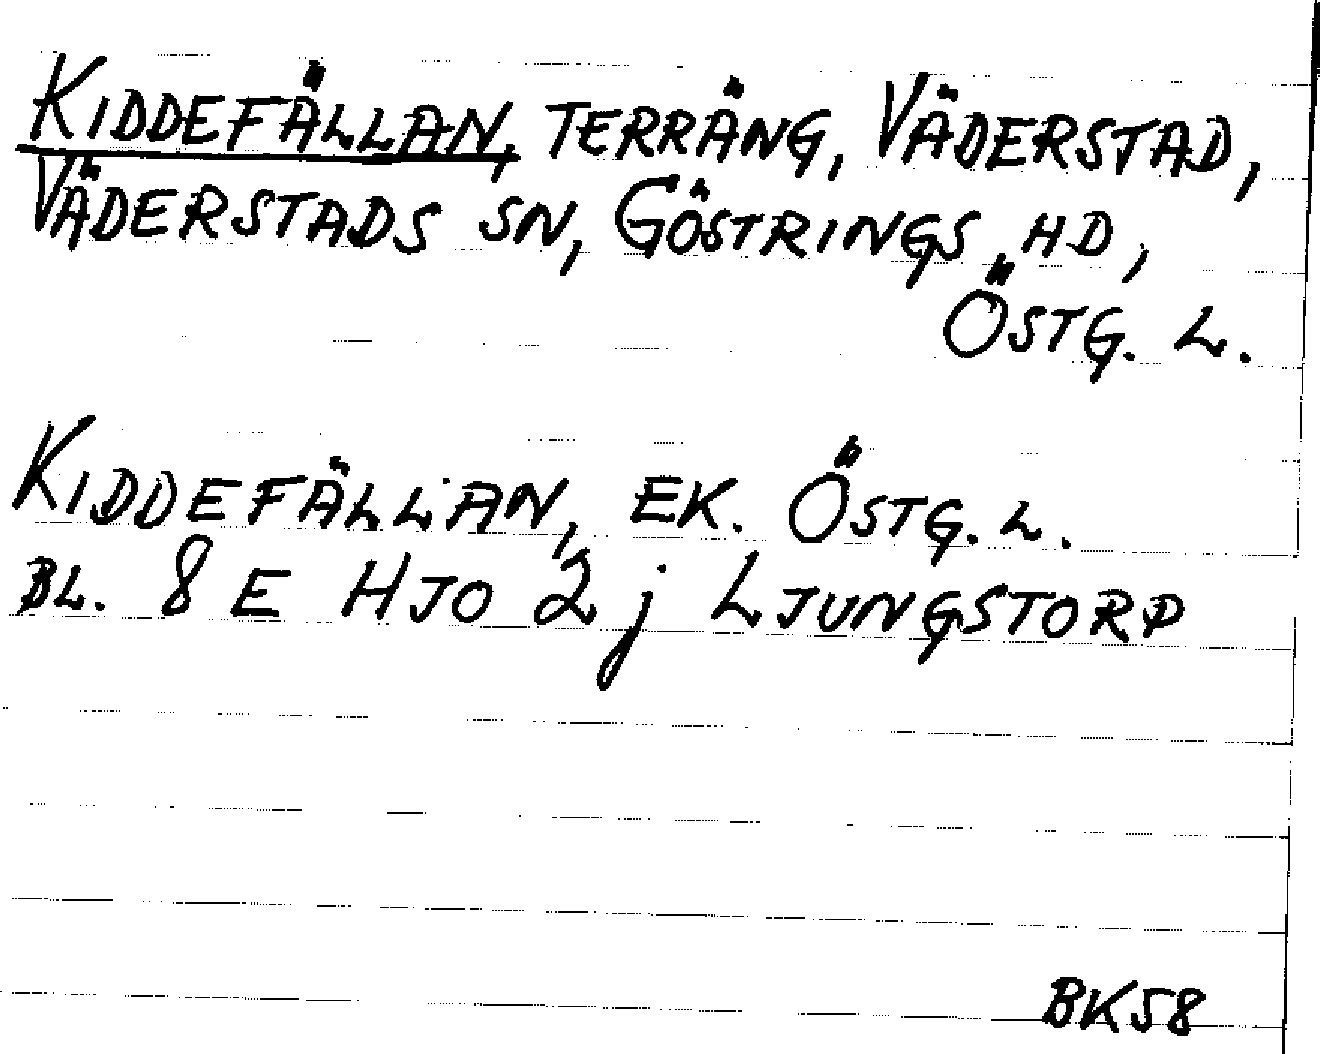 KIDDEFÄLLAN, TERRÄNG, VÄDERSTAD,
VÄDERSTADS SN, GÖSTRINGS HD,
ÖSTG. L.
KIDDEFÄLLAN, EK. ÖSTG. L.
BL. 8 E HJO 2 j LJUNGSTORP
BK58